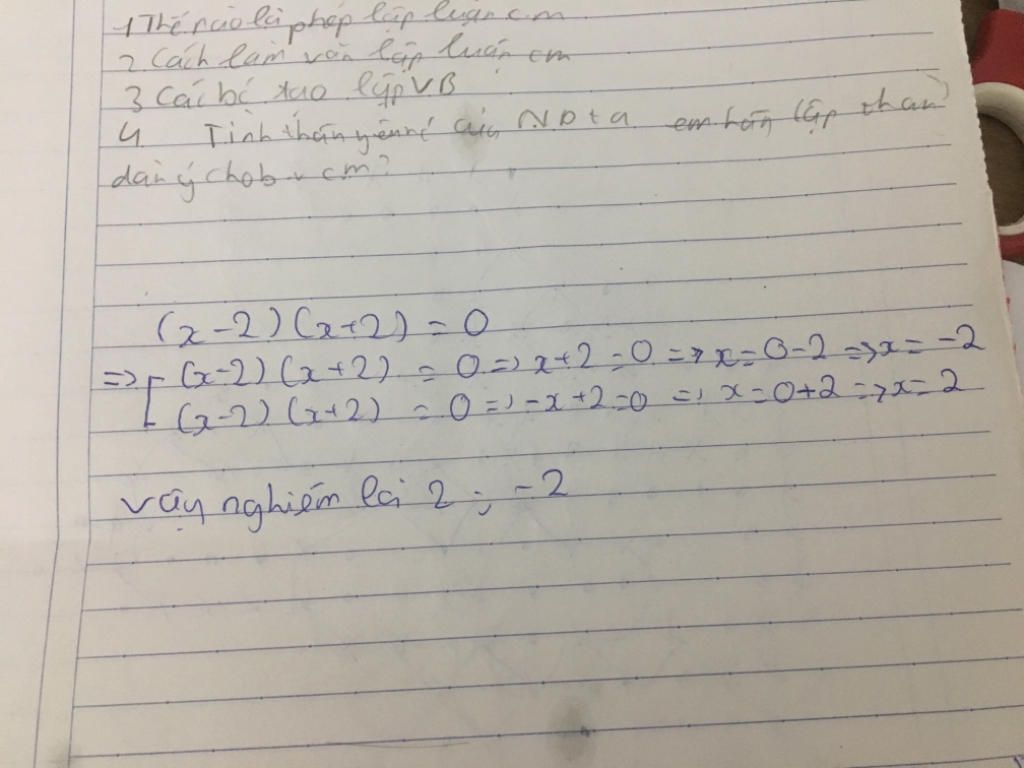 1 Thế nào là phép lập luận c.m
2 Cách làm văn lập luận cm
3 Các bc tạo lập VB
4 Tinh thần yêu nc của NDta em hãy lập
dàn ý cho bv cm?
(x-2)(x+2) = 0
=> [ (x-2)(x+2) = 0 => x+2=0 => x=0-2 => x=-2
(x-2)(x+2) = 0 => -x+2=0 => x=0+2 => x=2
vậy nghiệm là 2 ; -2